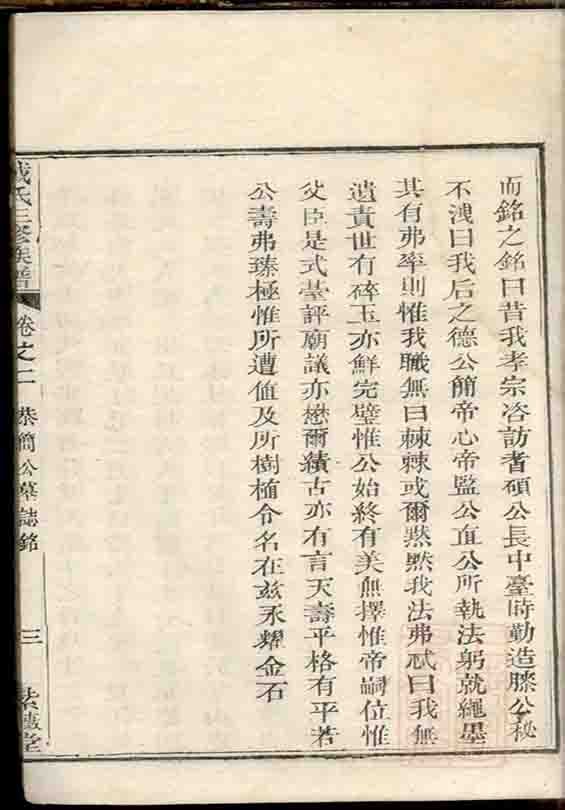 而銘之銘曰昔我孝宗咨訪耆碩公長中臺時勤造膝公秘
不洩曰我后之德公簡帝心帝監公直公所執法躬就繩墨
其有弗率則惟我職無曰棘棘或爾黙黙我法弗忒曰我無
遺責世有碎玉亦鮮完璧惟公始終有美無擇惟帝嗣位惟
父臣是式臺評廟議亦懋爾績古亦有言天壽平格有平若
公壽弗臻極惟所遭値及所樹植令名在兹永耀金石
戴氏三修族譜 卷之二 恭簡公墓誌銘 三